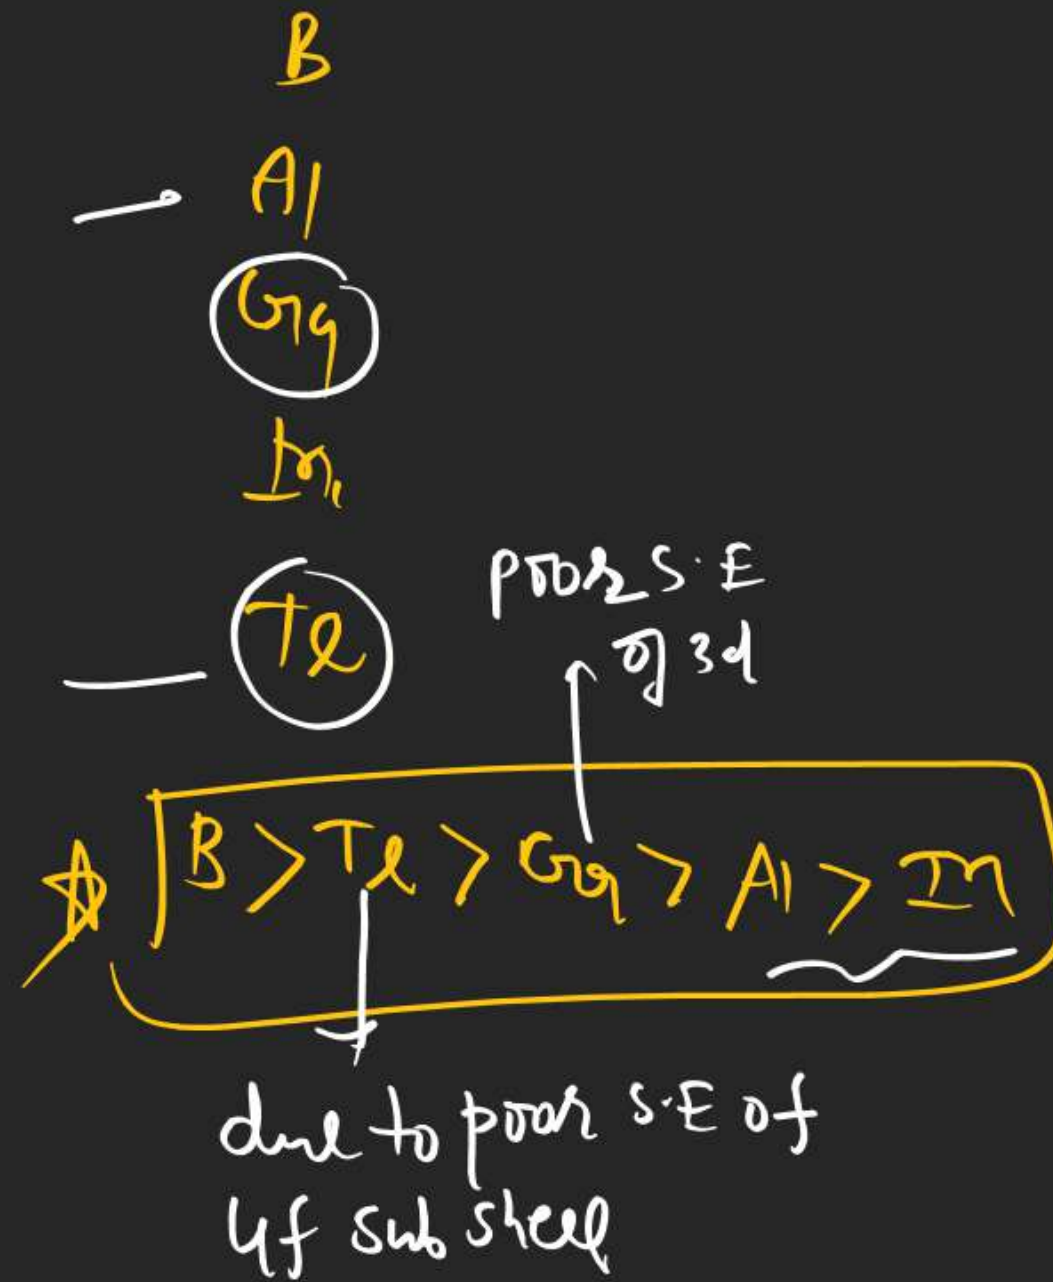 B
Al
Ga
In
Tl
poor S.E
of 3d
B > Tl > Ga > Al > In
due to poor S.E of
4f sub shell